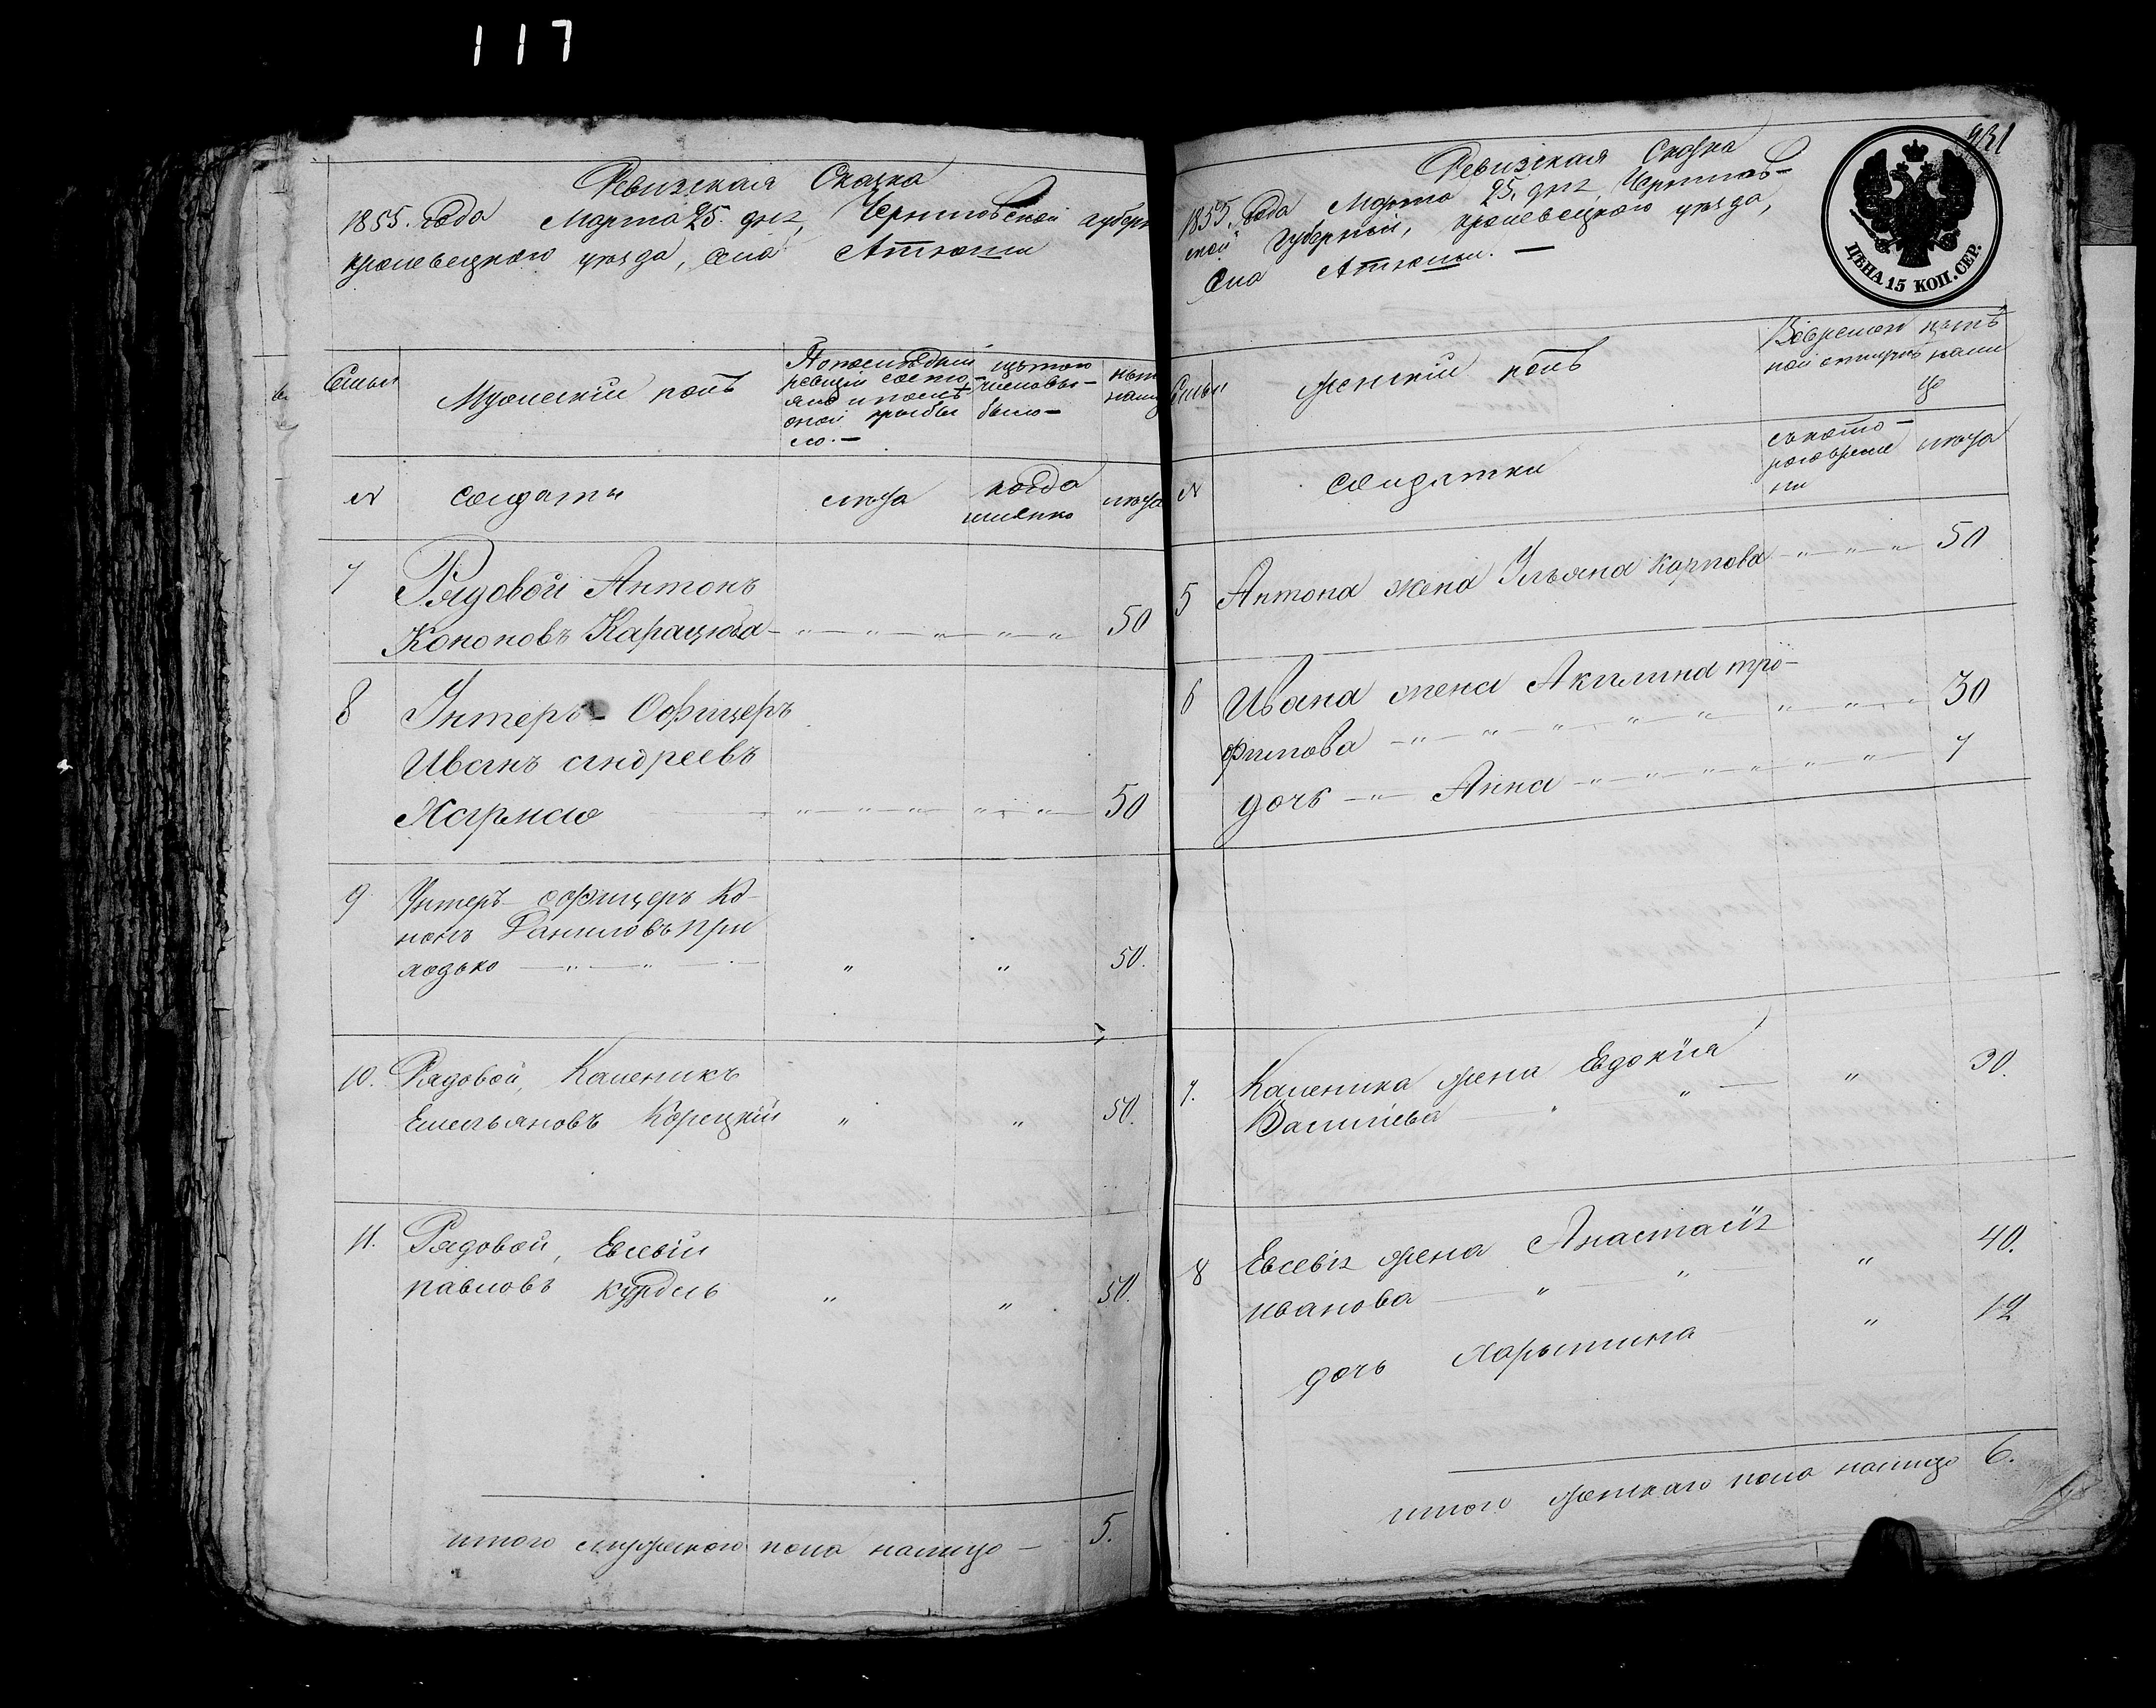 117
Ревизская Сказка
1855. Года Марта 25. дня, Черниговской губерн
кролевецкого уезда, села Атюши
Семьи
Мужескій полъ
По последней
ревизіи состо
яло и после
оной прибы
ло.—
изъ того
числа вы-
было—
ныне
налиц
№
солдаты
лета
когда
именно
лета
7
Рядовой Антонъ
Кононовъ Карацюба
50
8
Унтеръ-Офицеръ
Иванъ Андреевъ
Хармао
50
9
Унтеръ-офицеръ Ко-
нонъ Даниловъ При
ходько
50.
10. Рядовой, Каленикъ
Емельяновъ Корицкій
50.
11. Рядовой, Евсевій
павловъ Курдель
50.
итого мужескаго пола налицо — 5.
931
Ревизская Сказка
1855. Года Марта 25, дня Чернигов-
ской Губерніи, кролевецкого уезда,
Села Атюши. —
ЦѢНА 15 КОП. СЕР.
Семьи
женскій полъ
Вовремен
ной отлучке
ныне
нали
це
№
солдатки
съ кото-
рого време
ни
лета
5 Антона жена Ульяна Карпова 50
6 Ивана жена Акилина тро-
фимова 30
дочь Анна 7
7. Каленика жена Евдокія 30.
Васильева
8 Евсевія жена Анастасія 40.
иванова
дочь Харытина 12
итого женскаго пола налицо 6.